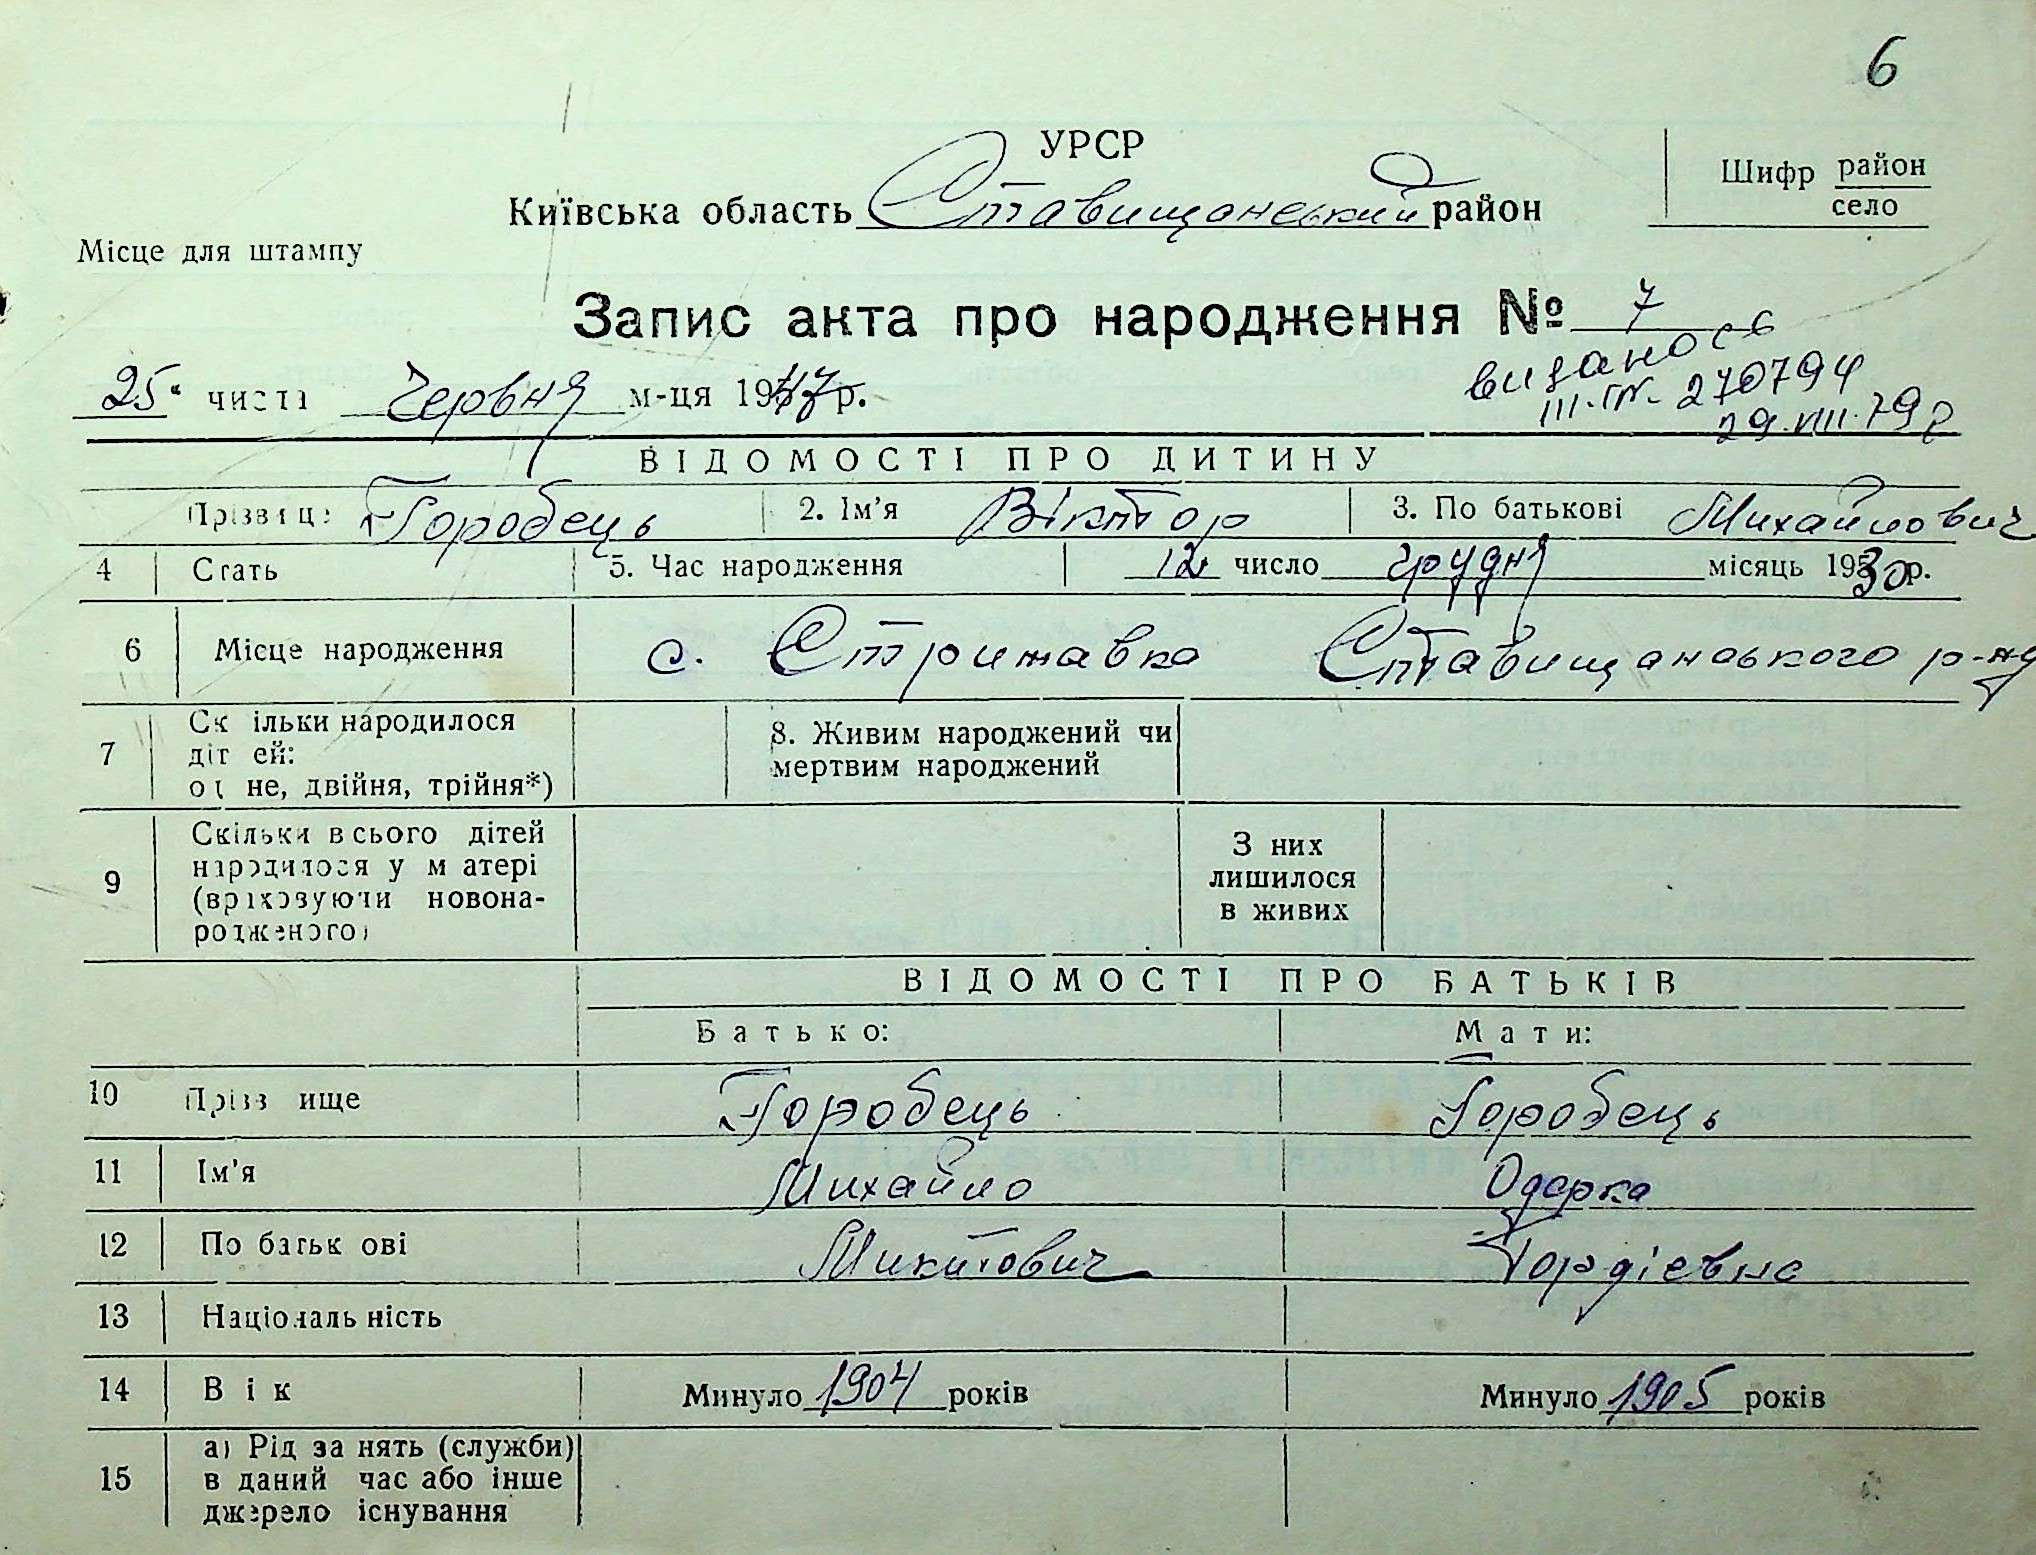 6
УРСР
Київська область Ставищанський район
Шифр район
село
Місце для штампу
Запис акта про народження № 7
видано св
25" числа Червня м-ця 1947 р.
III-ГЛ. 270794
29.VIII.79 р
ВІДОМОСТІ ПРО ДИТИНУ
Прізвище Горобець 2. Ім'я Віктор 3. По батькові Михайлович
4 Стать 5. Час народження 12 число грудня місяць 1930 р.
6 Місце народження с. Стрижавка Ставищанського р-ну
7 Скільки народилося дітей: одне, двійня, трійня*) 8. Живим народжений чи мертвим народжений
9 Скільки всього дітей народилося у матері (враховуючи новонародженого) З них лишилося в живих
ВІДОМОСТІ ПРО БАТЬКІВ
Батько: Мати:
10 Прізвище Горобець Горобець
11 Ім'я Михайло Одарка
12 По батькові Микитович Гордієвна
13 Національність
14 Вік Минуло 1904 років Минуло 1905 років
15 а) Рід занять (служби) в даний час або інше джерело існування